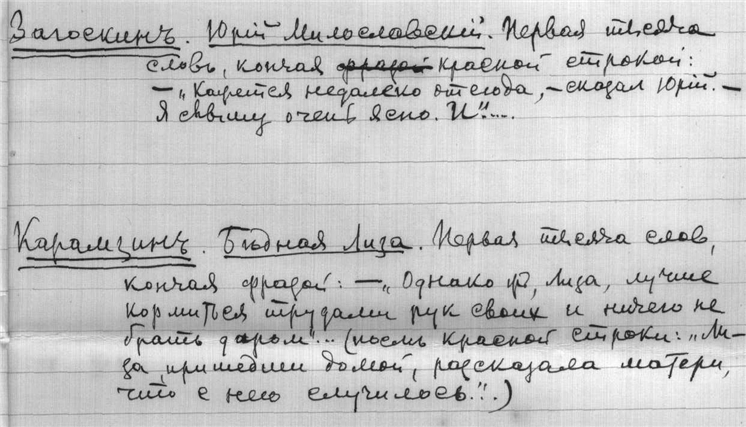 Загоскинъ. Юрій Милославскій. Первая тысяча
словъ, кончая фразой красной строкой:
— „Кажется недалеко отсюда, — сказал Юрій. —
Я слышу очень ясно. И"....
Карамзинъ. Бѣдная Лиза. Первая тысяча слов,
кончая фразой: — „Однако ж, Лиза, лучше
кормиться трудами рук своих и ничего не
брать даром"... (послѣ красной строки: „Ли-
за, пришедши домой, рассказала матери,
что с нею случилось.".)